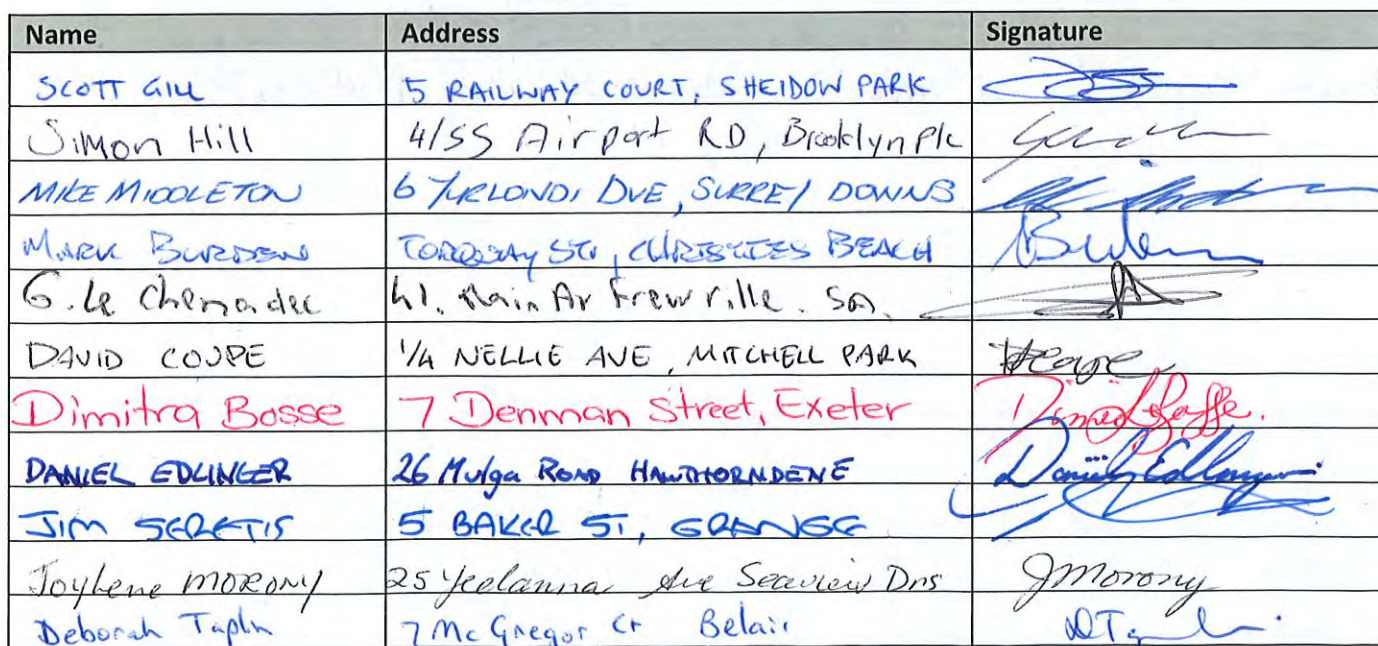 Name Address Signature
SCOTT GILL 5 RAILWAY COURT, SHEIDOW PARK
Simon Hill 4/55 Airport RD, Brooklyn Pk
MIKE MIDDLETON 6 DVE, SURREY DOWNS
MARK BURDEN TORQUAY ST, CHRISTIES BEACH
G. Le Chenadec 41. Main Av Frewville. SA.
DAVID COUPE 1/4 NELLIE AVE, MITCHELL PARK
Dimitra Bosse 7 Denman Street, Exeter
DANIEL EDLINGER 26 Mulga ROAD HAWTHORNDENE
JIM SERETIS 5 BAKER ST, GRANGE
Joylene MORONY 25 Yeelanna Ave Seaview Dns JMorony
Deborah Taplin 7 Mc Gregor Cr Belair